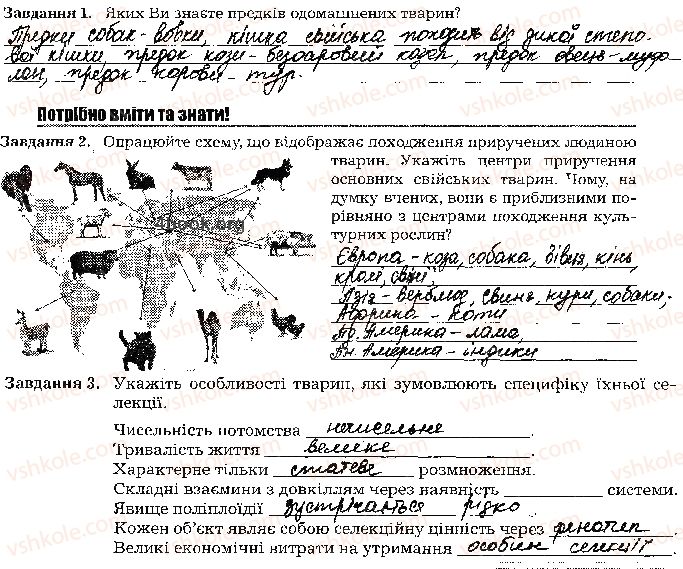 Завдання 1. Яких Ви знаєте предків одомашнених тварин?
Предки собак - вовки, кішка свійська походить від дикої степо-
вої кішки, предок кози - безоаровий козел, предок овець - муфлон,
предок корови - тур.
Потрібно вміти та знати!
Завдання 2. Опрацюйте схему, що відображає походження приручених людиною
тварин. Укажіть центри приручення
основних свійських тварин. Чому, на
думку вчених, вони є приблизними по-
рівняно з центрами походження куль-
турних рослин?
Європа - коза, собака, вівця, кінь,
кролі, свині,
Азія - верблюд, свині, кури, собаки;
Африка - коти
Пд. Америка - лама,
Пн. Америка - індики
Завдання 3. Укажіть особливості тварин, які зумовлюють специфіку їхньої се-
лекції.
Чисельність потомства нечисельне.
Тривалість життя велике.
Характерне тільки статеве розмноження.
Складні взаємини з довкіллям через наявність системи.
Явище поліплоїдії зустрічається рідко.
Кожен об'єкт являє собою селекційну цінність через фенотип.
Великі економічні витрати на утримання особин селекції.